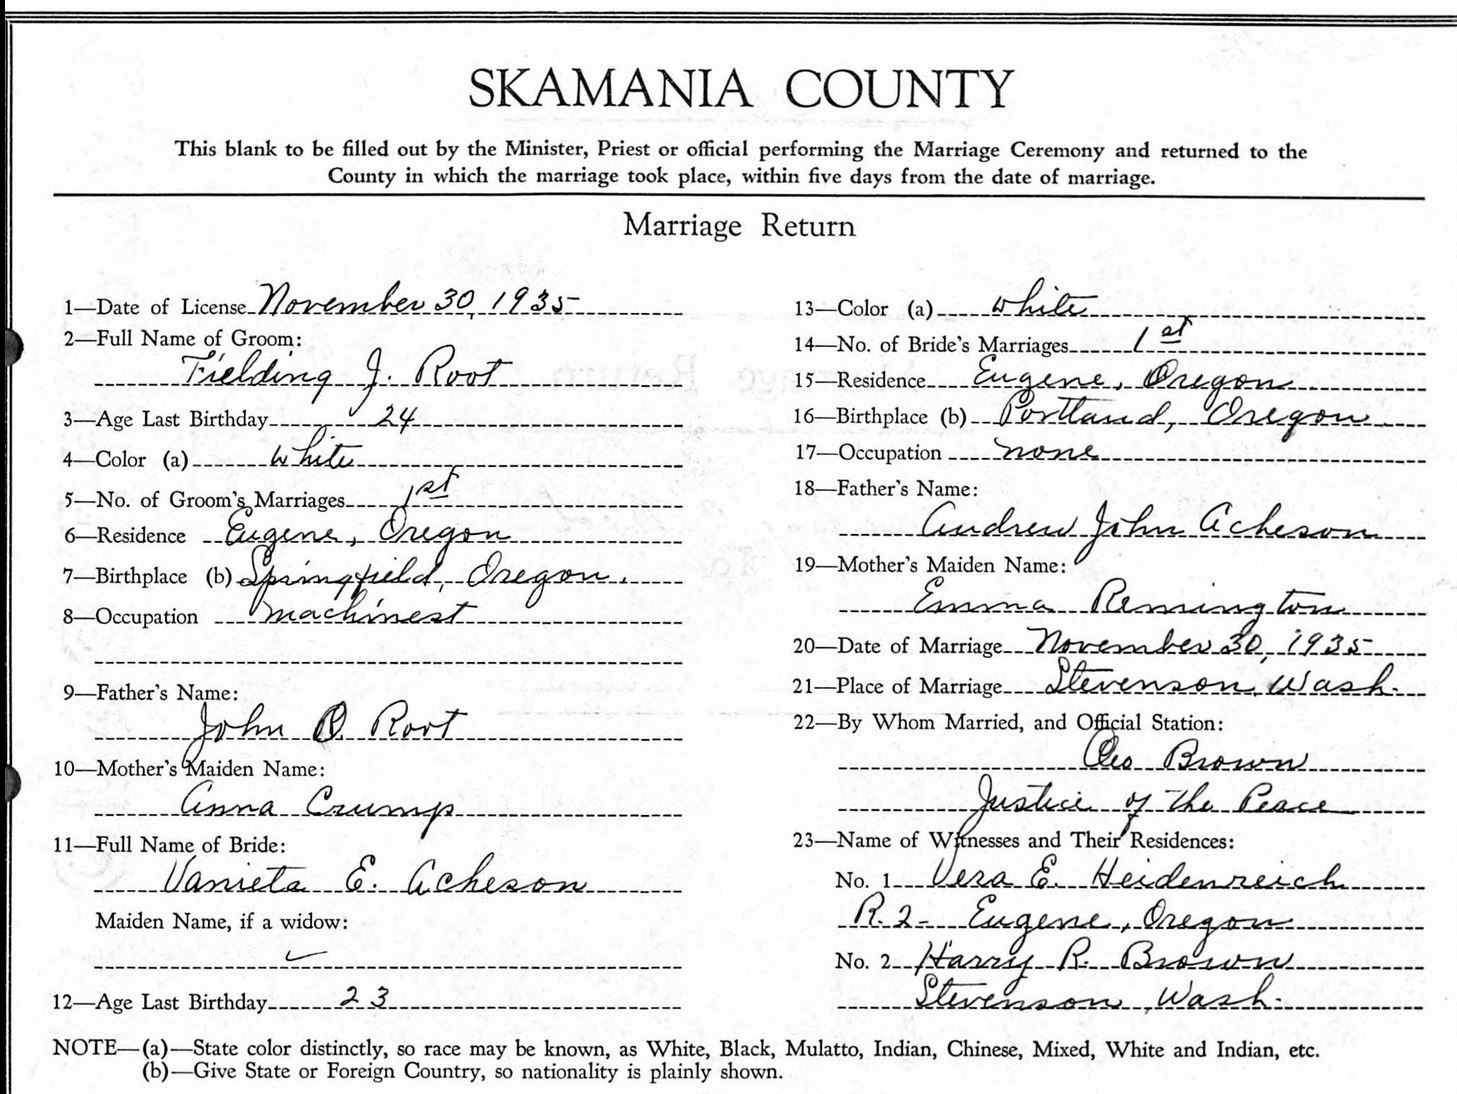 SKAMANIA COUNTY
This blank to be filled out by the Minister, Priest or official performing the Marriage Ceremony and returned to the
County in which the marriage took place, within five days from the date of marriage.
Marriage Return
1—Date of License November 30, 1935
2—Full Name of Groom:
Fielding J. Root
3—Age Last Birthday 24
4—Color (a) white
5—No. of Groom's Marriages 1st
6—Residence Eugene, Oregon
7—Birthplace (b) Springfield, Oregon.
8—Occupation machinest
9—Father's Name:
John O Root
10—Mother's Maiden Name:
Anna Crump
11—Full Name of Bride:
Vanieta E. Acheson
Maiden Name, if a widow:
12—Age Last Birthday 23
13—Color (a) white
14—No. of Bride's Marriages 1st
15—Residence Eugene, Oregon
16—Birthplace (b) Portland, Oregon
17—Occupation none
18—Father's Name:
Andrew John Acheson
19—Mother's Maiden Name:
Emma Remington
20—Date of Marriage November 30, 1935
21—Place of Marriage Stevenson, Wash.
22—By Whom Married, and Official Station:
Geo Brown
Justice of the Peace
23—Name of Witnesses and Their Residences:
No. 1 Vera E. Heidenreich
R.2- Eugene, Oregon
No. 2 Harry R. Brown
Stevenson, Wash.
NOTE—(a)—State color distinctly, so race may be known, as White, Black, Mulatto, Indian, Chinese, Mixed, White and Indian, etc.
(b)—Give State or Foreign Country, so nationality is plainly shown.